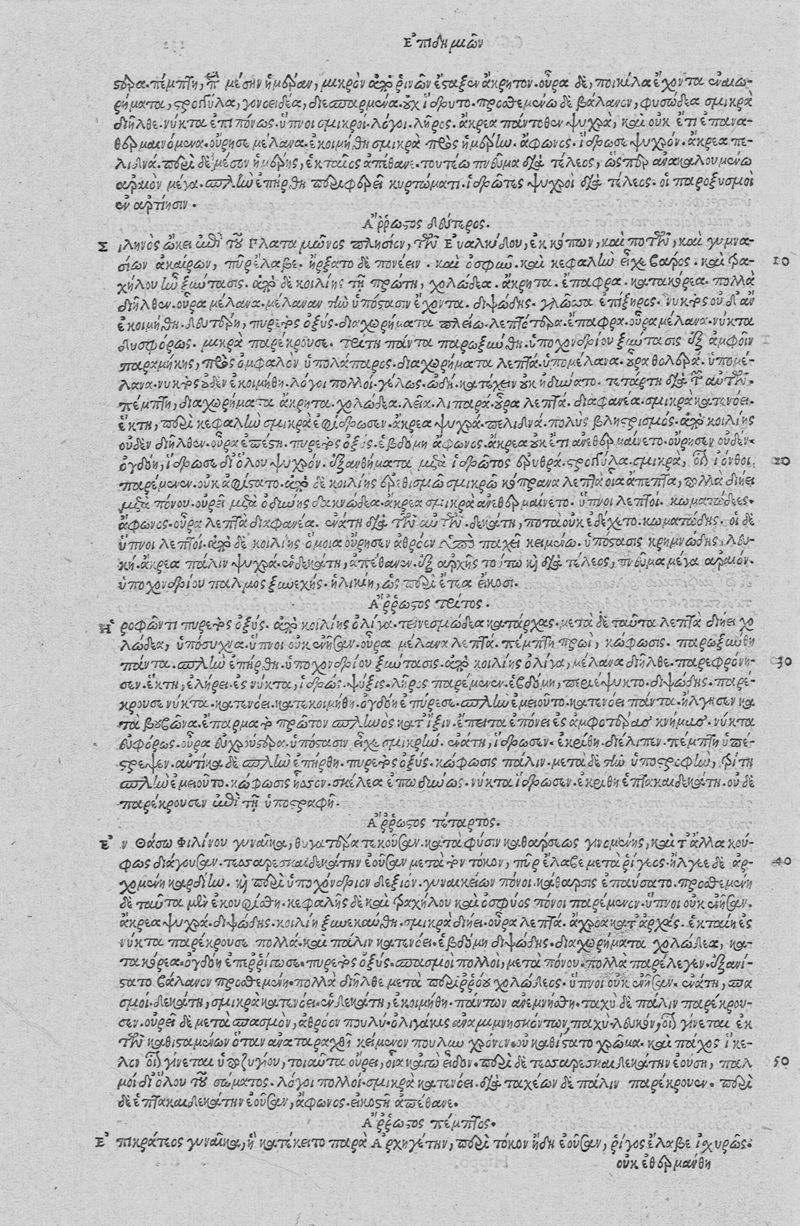 Ἐπιδημιῶν
τέρα. πέμπτῃ, περὶ μέσην ἡμέραν, μικρὸν ἀπὸ ῥινῶν ἔσταξεν ἄκρητον. οὖρα δὲ, ποικίλα ἔχοντα ἐναιω-
ρήματα, στρογγύλα, γονοειδέα, διεσπαρμένα. οὐχ ἱδρυτο. προσθεμένῳ δὲ βάλανον, φυσώδεα σμικρὰ
διῆλθε. νύκτα ἐπιπόνως. ὕπνοι σμικροί. λόγοι. λῆρος. ἄκρεα πάντοθεν ψυχρὰ, καὶ οὐκ ἔτι ἐπανα-
θερμαινόμενα. οὔρησε μέλανα. ἐκοιμήθη σμικρὰ πρὸς ἡμέρην. ἄφωνος. ἵδρωσε ψυχρόν. ἄκρεα πε-
λιδνά. περὶ δὲ μέσον ἡμέρης, ἑκταῖος ἀπέθανε. τουτέῳ πνεῦμα διὰ τέλεος, ὥσπερ ἀνακαλουμένῳ
ἀραιὸν μέγα. σπλὴν ἐπήρθη περιφερεῖ κυρτώματι. ἱδρῶτες ψυχροὶ διὰ τέλεος. οἱ παροξυσμοὶ
ἐν ἀρτίῃσιν.
Ἄῤῥωστος δεύτερος.
Σιληνὸς ᾤκει ἐπὶ τοῦ Πλαταμῶνος πλησίον, τῶν Εὐαλκίδου, ἐκ κόπων, καὶ ποτῶν, καὶ γυμνα-
σίων ἀκαίρων, πῦρ ἔλαβε. ἤρξατο δὲ πονέειν. καὶ ὀσφῦν. καὶ κεφαλὴν εἶχε βάρος. καὶ τρα- 10
χήλου ἦν ξύντασις. ἀπὸ δὲ κοιλίης τῇ πρώτῃ, χολώδεα. ἄκρητα. ἔπαφρα. κατακόρεα. πολλὰ
διῆλθεν. οὖρα μέλανα. μέλαναν τὴν ὑπόστασιν ἔχοντα. διψώδης. γλῶσσα ἐπίξηρος. νυκτὸς οὐδὲν
ἐκοιμήθη. δευτέρῃ, πυρετὸς ὀξύς. διαχωρήματα πλείω. λεπτότερα. ἔπαφρα. οὖρα μέλανα. νύκτα
δυσφόρως. μικρὰ παρέκρουσε. τρίτῃ πάντα παρωξύνθη. ὑποχονδρίου ξύντασις ἐξ ἀμφοῖν
παραμήκης, πρὸς ὀμφαλὸν ὑπολάπαρος. διαχωρήματα λεπτὰ. ὑπομέλανα. οὖρα θολερὰ. ὑπομέ-
λανα. νυκτὸς οὐδὲν ἐκοιμήθη. λόγοι πολλοί. γέλως. ᾠδή. κατέχειν οὐκ ἠδύνατο. τετάρτῃ διὰ τῶν αὐτῶν.
πέμπτῃ, διαχωρήματα ἄκρητα. χολώδεα. λεῖα. λιπαρά. οὖρα λεπτὰ. διαφανέα. σμικρὰ κατενόει.
ἕκτῃ, περὶ κεφαλὴν σμικρὰ ἐφίδρωσεν. ἄκρεα ψυχρὰ. πελιδνά. πολὺς βληστρισμός. ἀπὸ κοιλίης
οὐδὲν διῆλθεν. οὖρα ἐπέστη. πυρετὸς ὀξύς. ἑβδόμῃ ἄφωνος. ἄκρεα οὐκ ἔτι ἀνεθερμαίνετο. οὔρησεν οὐδέν.
ὀγδόῃ, ἵδρωσε δι' ὅλου ψυχρόν. ἐξανθήματα μετὰ ἱδρῶτος ἐρυθρὰ. στρογγύλα. σμικρὰ, οἷον ἴονθοι. 20
παρέμενεν. οὐκ ἀφίστατο. ἀπὸ δὲ κοιλίης ἐρεθισμῷ σμικρῷ κόπρανα λεπτὰ οἷα ἄπεπτα, πολλὰ διῄει
μετὰ πόνου. οὔρει μετὰ ὀδύνης δακνώδεα. ἄκρεα σμικρὰ ἀνεθερμαίνετο. ὕπνοι λεπτοί. κωματώδεες.
ἄφωνος. οὖρα λεπτὰ διαφανέα. ἐνάτῃ διὰ τῶν αὐτῶν. δεκάτῃ, ποτὰ οὐκ ἐδέχετο. κωματώδης. οἱ δὲ
ὕπνοι λεπτοί. ἀπὸ δὲ κοιλίης ὅμοια. οὔρησεν ἀθρόον ὑπόπαχυ. κειμένῳ. ὑπόστασις κρημνώδης. λευ-
κή. ἄκρεα πάλιν ψυχρὰ. ἑνδεκάτῃ, ἀπέθανεν. ἐξ ἀρχῆς τούτῳ καὶ διὰ τέλεος, πνεῦμα μέγα ἀραιόν.
ὑποχονδρίου παλμὸς ξυνεχής. ἡλικίη, ὡς περὶ ἔτεα εἴκοσι.
Ἄῤῥωστος τρίτος.
Ἡροφῶντι πυρετὸς ὀξύς. ἀπὸ κοιλίης ὀλίγα. τεινεσμώδεα κατάρχας. μετὰ δὲ ταῦτα λεπτὰ διῄει χο
λώδεα, ὑπόσυχνα. ὕπνοι οὐκ ἐνῆσαν. οὖρα μέλανα λεπτά. πέμπτῃ πρωῒ, κώφωσις. παρωξύνθη
πάντα. σπλὴν ἐπήρθη. ὑποχονδρίου ξύντασις. ἀπὸ κοιλίης ὀλίγα, μέλανα διῆλθε. παρεφρόνη- 30
σεν. ἕκτῃ, ἐλήρει. ἐς νύκτα, ἱδρώς. ψύξις. λῆρος παρέμενεν. ἑβδόμῃ, περιέψυκτο. διψώδης. παρέ-
κρουσεν. νύκτα. κατενόει. κατεκοιμήθη. ὀγδόῃ ἐπύρεσσε. σπλὴν ἐμειοῦτο. κατενόει πάντα. ἤλγησεν κα
τὰ βουβῶνα. ἔπαρμα τὸ πρῶτον σπληνὸς κατ' ἴξιν. ἔπειτα ἐπόνει ἐς ἀμφοτέρας κνήμας. νύκτα
εὐφόρως. οὖρα εὐχρούστερα. ὑπόστασιν εἶχε σμικρήν. ἐνάτῃ, ἵδρωσεν. ἐκρίθη. διέλιπεν. πέμπτῃ ὑπέ-
στρεψεν. αὐτίκα δὲ σπλὴν ἐπήρθη. πυρετὸς ὀξύς. κώφωσις πάλιν. μετὰ δὲ τὴν ὑποστροφὴν, τρίτῃ
σπλὴν ἐμειοῦτο. κώφωσις ἧσσον. σκέλεα ἐπωδύνως. νύκτα ἵδρωσεν. ἐκρίθη ἑπτακαιδεκάτῃ. οὐδὲ
παρέκρουσεν ἐπὶ τῇ ὑποστροφῇ.
Ἄῤῥωστος τέταρτος.
Ἐν Θάσῳ Φιλίνου γυναῖκα, θυγατέρα τεκοῦσαν. κατὰ φύσιν καθάρσεως γινομένης, καὶ τ' ἄλλα κού-
φως διάγουσαν. τεσσαρεσκαιδεκάτην ἐοῦσαν μετὰ τὸν τόκον, πῦρ ἔλαβε μετὰ ῥίγεος. ἤλγεε δὲ ἀρ- 40
χομένη καρδίην. καὶ περὶ ὑποχόνδριον δεξιόν. γυναικείων πόνοι. κάθαρσις ἐπαύσατο. προσθεμένῃ
δὲ ταῦτα μὲν ἐκουφίσθη. κεφαλῆς δὲ καὶ τραχήλου καὶ ὀσφύος πόνοι παρέμενον. ὕπνοι οὐκ ἐνῆσαν.
ἄκρεα ψυχρά. διψώδης. κοιλίη ξυνεκαύθη. σμικρὰ διῄει. οὖρα λεπτὰ. ἄχροα κατ' ἀρχὰς. ἑκταίη ἐς
νύκτα παρέκρουσε πολλὰ. καὶ πάλιν κατενόει. ἑβδόμῃ διψώδης. διαχωρήματα χολώδεα, κα-
τακόρεα. ὀγδόῃ ἐπεῤῥίγωσε. πυρετὸς ὀξύς. σπασμοὶ πολλοὶ, μετὰ πόνου. πολλὰ παρέλεγεν. ἐξανί-
στατο. βάλανον προσθεμένη. πολλὰ διῆλθε μετὰ περιῤῥόου χολώδεος. ὕπνοι οὐκ ἐνῆσαν. ἐνάτῃ, σπα
σμοί. δεκάτῃ, σμικρὰ κατενόει. ἑνδεκάτῃ, ἐκοιμήθη. πάντων ἀνεμνήσθη. ταχὺ δὲ πάλιν παρέκρου-
σεν. οὔρει δὲ μετὰ σπασμὸν, ἀθρόον πουλύ. ὀλιγάκις ἀναμιμνησκόντων, παχὺ. λευκόν, οἷον γίνεται ἐκ
τῶν καθισταμένων ὅταν ἀναταραχθῇ κείμενον πουλὺν χρόνον. οὐ καθίστατο χρῶμα. καὶ πάχος ἴκε-
λον οἷον γίνεται ὑποζυγίου, τοιαῦτα οὔρει, οἷα κᾀγὼ εἶδον. περὶ δὲ τεσσαρεσκαιδεκάτην ἐούσῃ, παλ 50
μοὶ δι' ὅλου τοῦ σώματος. λόγοι πολλοί. σμικρὰ κατενόει. διὰ ταχέων δὲ πάλιν παρέκρουεν. περὶ
δὲ ἑπτακαιδεκάτην ἐοῦσαν, ἄφωνος. εἰκοστῇ ἀπέθανε.
Ἄῤῥωστος πέμπτος.
Ἐπικράτεος γυναῖκα, ἣ κατέκειτο παρὰ Ἀρχηγέτην, περὶ τόκον ἤδη ἐοῦσαν, ῥῖγος ἔλαβε ἰσχυρῶς.
οὐκ ἐθερμάνθη